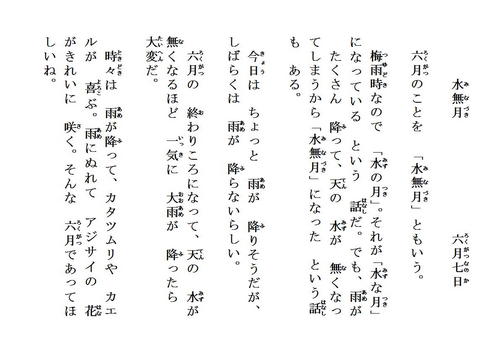 水無月　　六月七日
六月のことを　「水無月」ともいう。
梅雨時なので　「水の月」。それが「水な月」
になっている　という　話だ。でも、雨が
たくさん　降って、天の　水が　無くなっ
てしまうから「水無月」になった　という話
も　ある。
今日は　ちょっと　雨が　降りそうだが、
しばらくは　雨が　降らないらしい。
六月の　終わりころになって、天の　水が
無くなるほど　一気に　大雨が　降ったら
大変だ。
時々は　雨が降って、カタツムリや　カエ
ルが　喜ぶ。雨にぬれて　アジサイの　花
がきれいに　咲く。そんな　六月であってほ
しいね。